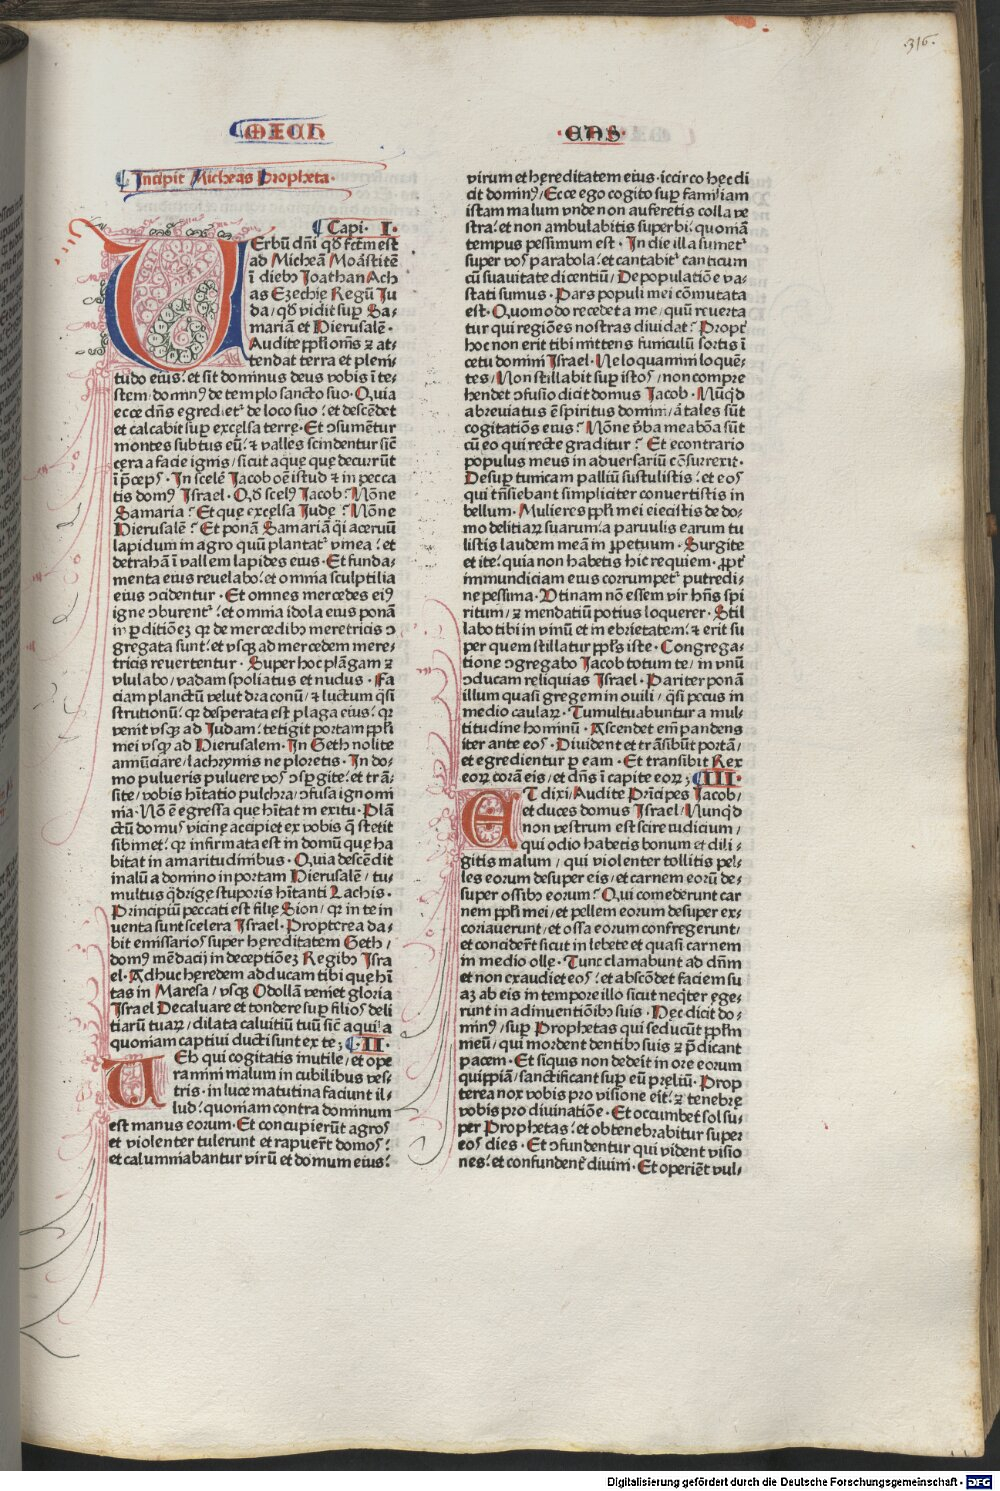 ·316·
MICH
·EAS·
Incipit Micheas Propheta·
Capi· I·
VErbū dn̄i qd̄ fctm̄ est
ad Micheā Moāstitē
ī dieb9 Joathan Ach
as Ezechie Regū Ju
da/ qd̄ vidit sup̄ Sa-
mariam et Hierusalē·
Audite pp̄li om̄s ⁊ at-
tendat terra et pleni-
tudo eius: et sit dominus deus vobis ī te-
stem: domin9 de templo sancto suo· Quia
ecce dn̄s egrediet᷑ de loco suo: et descēdet
et calcabit sup̄ excelsa terrę· Et ↄsumētur
montes subtus eū: ⁊ valles scindentur sic̄
cęra a facie ignis/ sicut aquę quę decurrūt
ī p̄ceps· In scelē Jacob oē istud ⁊ in pecca
tis dom9 Israel· Qd̄ scel9 Jacob? Nōne
Samaria? Et quę excelsa Judę? Nōne
Hierusalē? Et ponā Samariā q̄i aceruū
lapidum in agro quū plantat᷑ vinea: et
detrahā ī vallem lapides eius· Et funda-
menta eius reuelabo: et omnia sculptilia
eius ↄcidentur· Et omnes mercedes ei9
igne ↄburent᷑: et omnia idola eius ponā
in p̱ditiōeꝫ qr̄ de mercedib9 meretricis ↄ
gregata sunt: et vsqꝫ ad mercedem mere-
tricis reuertentur· Super hoc plāgam ⁊
vlulabo/ vadam spoliatus et nudus· Fa
ciam planctū velut draconū/ ⁊ luctum q̄si
strutionū: qr̄ desperata est plaga eius: qr̄
venit vsqꝫ ad Judam: tetigit portam pp̄li
mei vsqꝫ ad Hierusalem· In Geth nolite
annūciare/ lachrymis ne ploretis· In do-
mo pulueris puluere vos ↄsp̱gite: et trā-
site/ vobis hītatio pulchra/ ↄfusa ignomi
nia· Nō ē egressa que hītat in exitu· Plā
ctū domus vicinę accipiet ex vobis q̄ stetit
sibimet: qr̄ infirmata est in domū quę ha
bitat in amaritudinibus· Quia descēdit
malū a domino in portam Hierusalē/ tu-
multus q̄drigę stuporis hītanti Lachis·
Principiū peccati est filię Sion/ qr̄ in te in
uenta sunt scelera Israel· Propterea da-
bit emissarios super hęreditatem Geth/
dom9 mēdacij in deceptiōeꝫ Regib9 Isra
el· Adhuc hęredem adducam tibi quę hī
tas in Maresa/ vsqꝫ Odollā veniet gloria
Israel Decaluare et tondere sup̄ filios deli
tiarū tuaꝝ/ dilata caluitiū tuū sic̄ aquila
quoniam captiui ducti sunt ex te; II·
VEh qui cogitatis inutile/ et ope
ramini malum in cubilibus ves-
tris· in luce matutina faciunt il-
lud: quoniam contra dominum
est manus eorum· Et concupierūt agros
et violenter tulerunt et rapuer̄t domos:
et calumniabantur virū et domum eius:
virum et hęreditatem eius· iccirco hęc di
cit domin9/ Ecce ego cogito sup̄ familiam
istam malum vnde non auferetis colla ve
stra: et non ambulabitis superbi: quoniā
tempus pessimum est· In die illa sumet᷑
super vos parabola: et cantabit᷑ canticum
cū suauitate dicentiū/ Depopulatiōe va-
stati sumus· Pars populi mei cōmutata
est· Quomodo recedet a me/ quū reuerta
tur qui regiōes nostras diuidat? Propt᷑
hoc non erit tibi mittens funiculū sortis ī
cetu domini Israel· Ne loquamini loquē-
tes/ Non stillabit sup̄ istos/ non compre
hendet ↄfusio dicit domus Jacob· Nūq̇d
abreuiatus ē spiritus domini/ ā tales sūt
cogitatiōs eius? Nōne v̄ba mea bōa sūt
cū eo qui recte graditur? Et econtrario
populus meus in aduersariū cōsurrexit·
Desup̄ tunicam palliū sustulistis: et eos
qui trn̄siebant simpliciter conuertistis in
bellum· Mulieres pp̄li mei eiecistis de do-
mo delitiaꝝ suarum: a paruulis earum tu
listis laudem meā in p̱petuum· Surgite
et ite: quia non habetis hic requiem· p̱pt᷑
immundiciam eius corrumpet᷑ putredi-
ne pessima· Vtinam nō essem vir hn̄s spi
ritum/ ⁊ mendatiū potius loquerer· Stil
labo tibi in vinū et in ebrietatem: ⁊ erit su
per quem stillatur pp̄ls iste· Congrega-
tione ↄgregabo Jacob totum te/ in vnū
ↄducam reliquias Israel· Pariter ponā
illum quasi gregem in ouili/ q̄si pecus in
medio caulaꝝ· Tumultuabuntur a mul-
titudine hominū· Ascendet em̄ pandens
iter ante eos· Diuident et trāsibūt portā/
et egredientur p̱ eam· Et transibit Rex
eoꝝ corā eis/ et dn̄s ī capite eoꝝ; III·
ET dixi/ Audite Prīcipes Jacob/
et duces domus Israel/ Nunq̇d
non vestrum est scire iudicium/
qui odio habetis bonum et dili-
gitis malum/ qui violenter tollitis pel-
les eorum desuper eis/ et carnem eorū de-
super ossib9 eorum? Qui comederunt car
nem pp̄li mei/ et pellem eorum desuper ex-
coriauerunt/ et ossa eorum confregerunt/
et concider̄t sicut in lebete et quasi carnem
in medio ollę· Tunc clamabunt ad dn̄m
et non exaudiet eos: et abscōdet faciem su
aꝫ ab eis in tempore illo sicut neq̇ter ege-
runt in adinuentiōib9 suis· Hec dicit do-
min9/ sup̄ Prophetas qui seducūt pp̄lm
meū/ qui mordent dentib9 suis ⁊ p̄dicant
pacem· Et siquis non dedeit in ore eorum
quippiā/ sanctificant sup̄ eū pręliū· Prop
terea nox vobis pro visione eit: ⁊ tenebrę
vobis pro diuinatiōe· Et occumbet sol su-
per Prophetas: et obtenebrabitur super
eos dies· Et ↄfundentur qui vident visio
nes: et confundent᷑ diuini· Et operiēt vul-
Digitalisierung gefördert durch die Deutsche Forschungsgemeinschaft - DFG